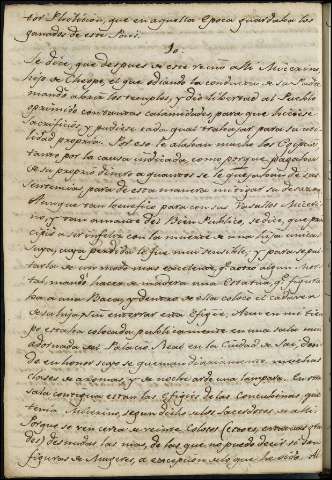 tor Philicion, que en aquella Epoca guardaba los
ganados de este Pais.
10.
Se dice, que despues de este reynò alli Micerino,
hijo de Cheope, el que odiando la conducta de su Padre
mandò abrir los templos, y diò libertad al Pueblo
oprimido con tantas calamidades para que hiciese
sacrificios, y pudiese cada qual trabajar para su uti-
lidad propria. Por eso le alaban mucho los Egipcios,
tanto por la causa indicada, como porque pagaba
de su proprio dinero a quantos se le quejaban de sus
sentencias para de esta manera mitigar su desazon.
Aunque tan benefico para con sus Vasallos Miceri-
no, y tan amante del Bien Publico, se dice, que prin-
cipiò a ser infeliz con la muerte de una hija unica
suya, cuya perdida le fue mui sensible, y para sepul-
tarla de un modo mas excelente, que a otro algun Mor-
tal, mandò hacer de madera una Estatua, que figura-
ba a una Baca, y dentro de ella colocò el cadaver
de su hija, sin enterrar esta Efigie. Aun en mi tiem-
po, estaba colocada publicamente en una sala mui
adornada del Palacio Real en la Ciudad de Sae, don-
de en honor suyo se queman diariamente muchas
clases de aromas, y de noche arde una lampara. En otra
sala contigua estan las Efigies de las Concubinas, que
tenia Micerino, segun dicho de los Sacerdotes de alli.
Porque se ven cerca de veinte Colosos (esto es, entatuas gran-
des) desnudas las mas, de las que no puedo decir si son
figuras de Mugeres, a excepcion de lo que ha sido. Al-